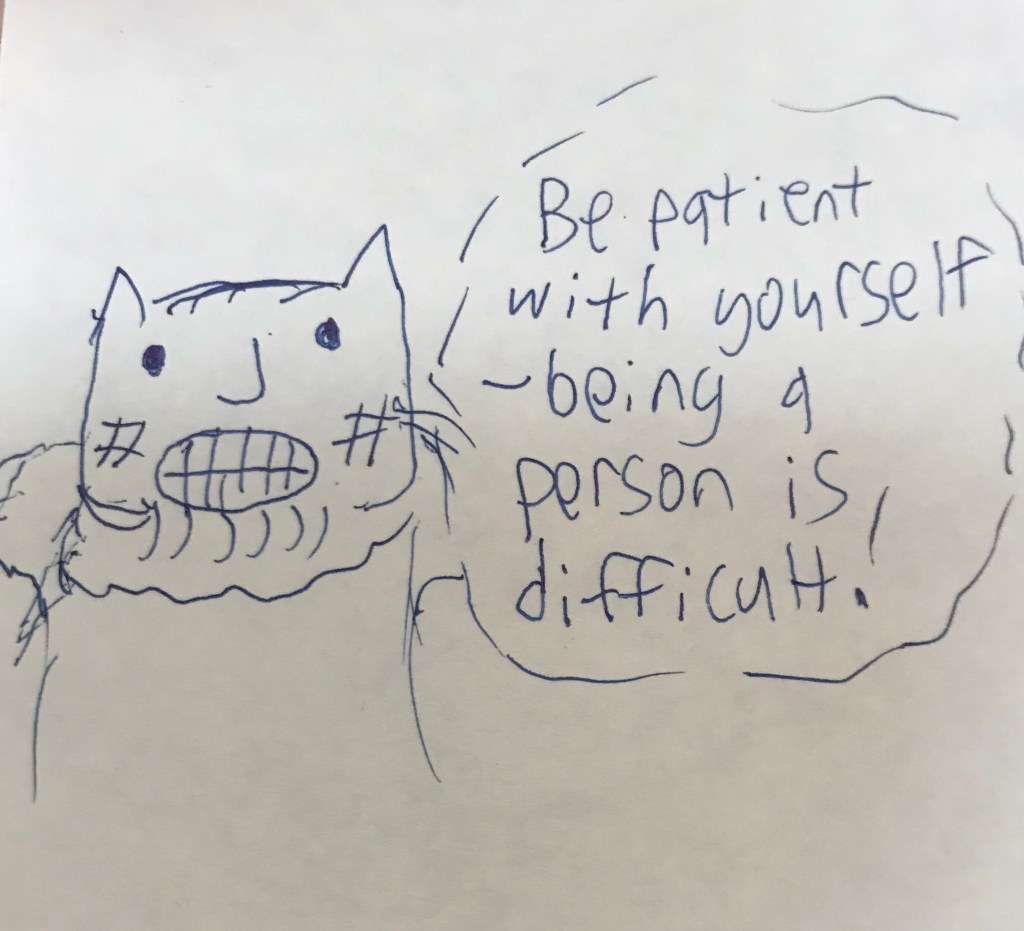 Be patient
with yourself
- being a
person is
difficult!